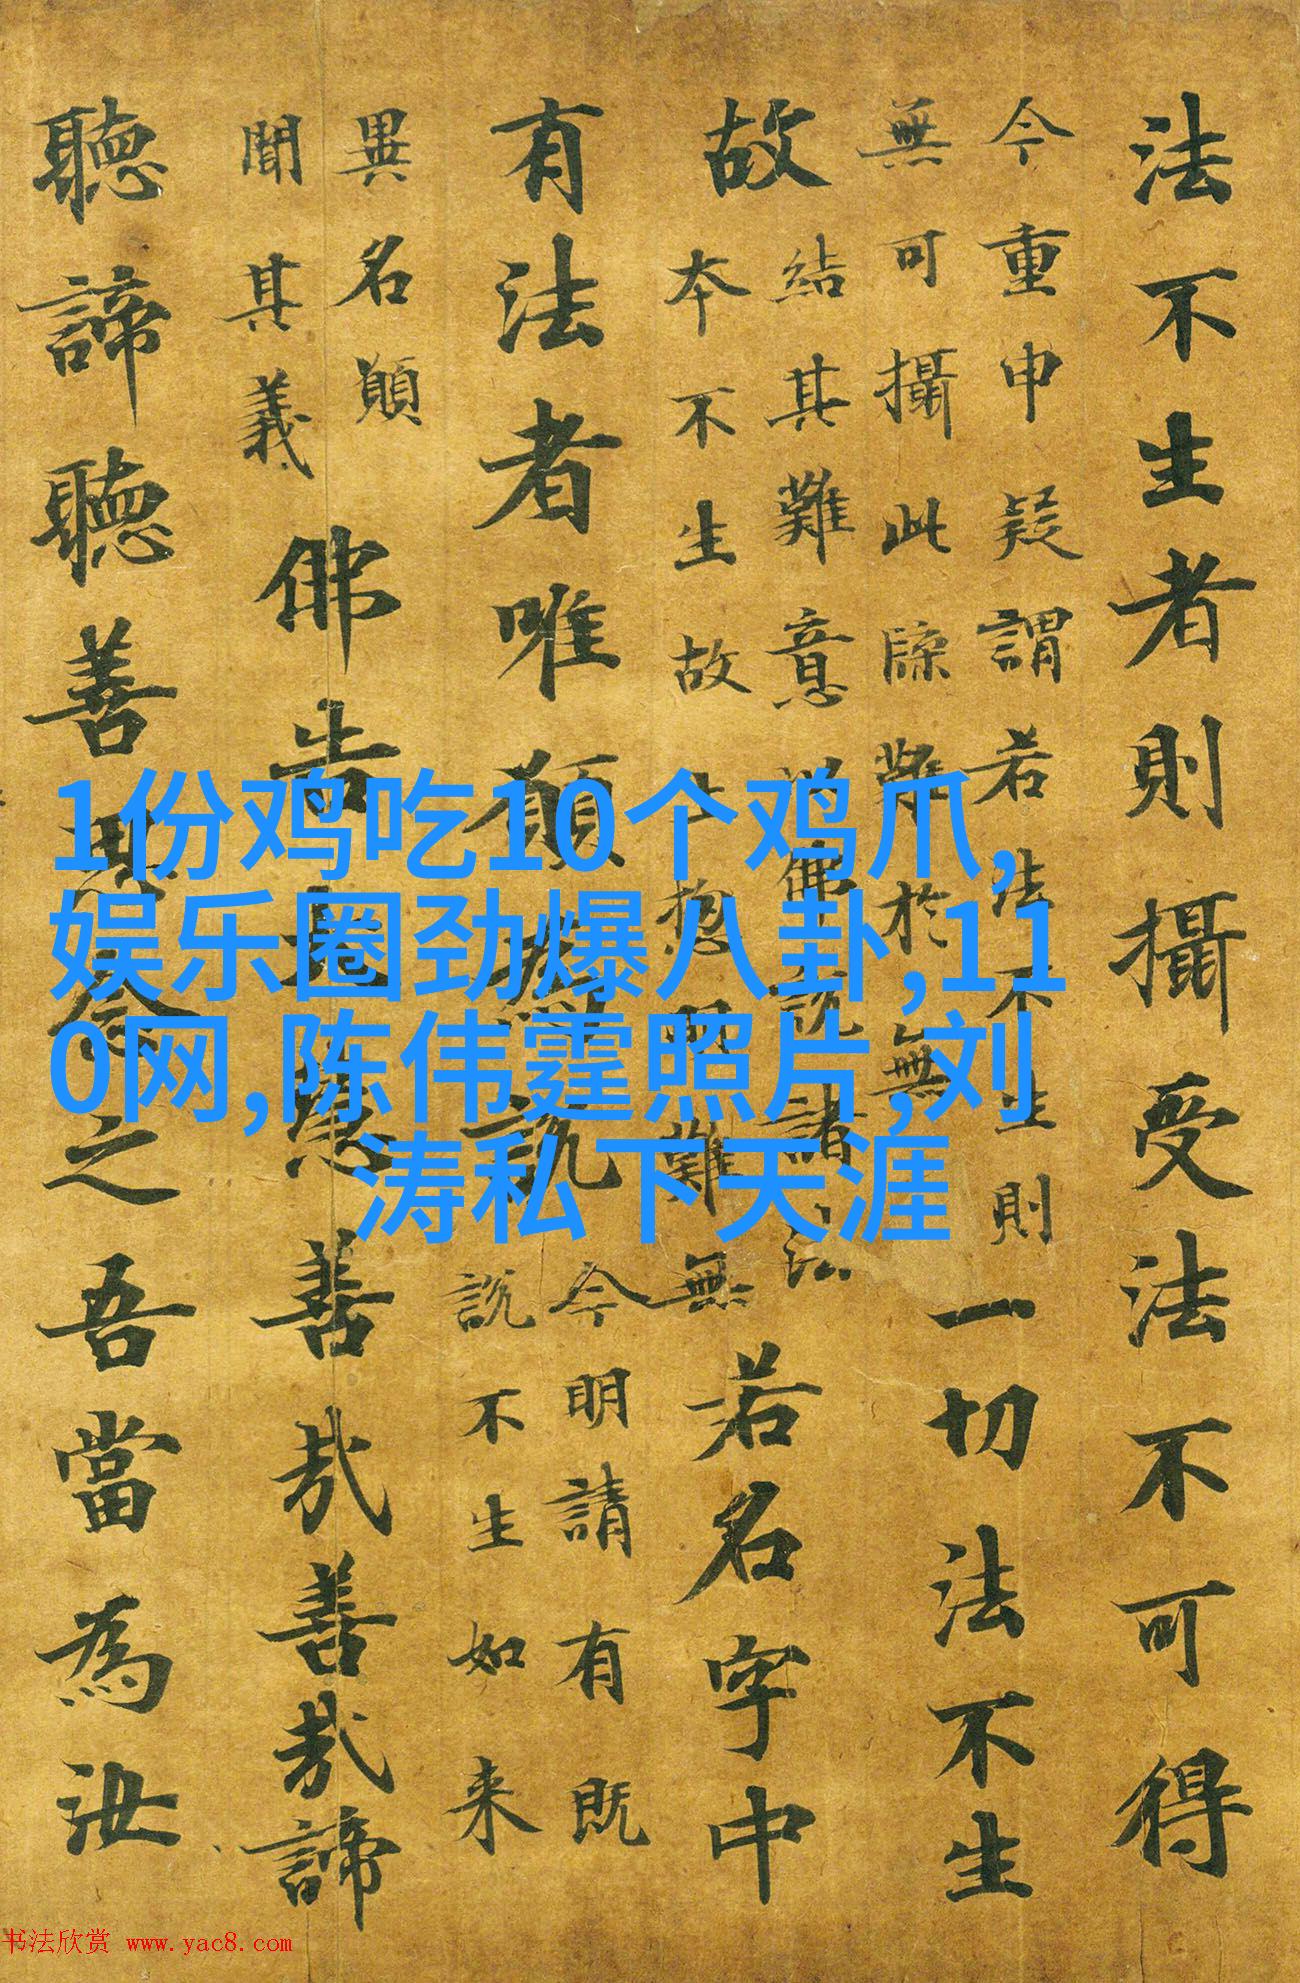 法不生者則攝受法不可得
今重申疑謂若法不生則
無可攝此牒難於無
一切法不生
故
結其難意
諸法
本不生故
難無
若名字中
有法者唯願為說
今明請有既
說不生如来
異名願
聞其義
佛告大慧善哉善哉諦
聽諦聽善思念之吾當為汝
1份鸡吃10个鸡爪,
娱乐圈劲爆八卦,11
0网,陈伟霆照片,刘
涛私下天涯
书法欣赏 www.yac8.com